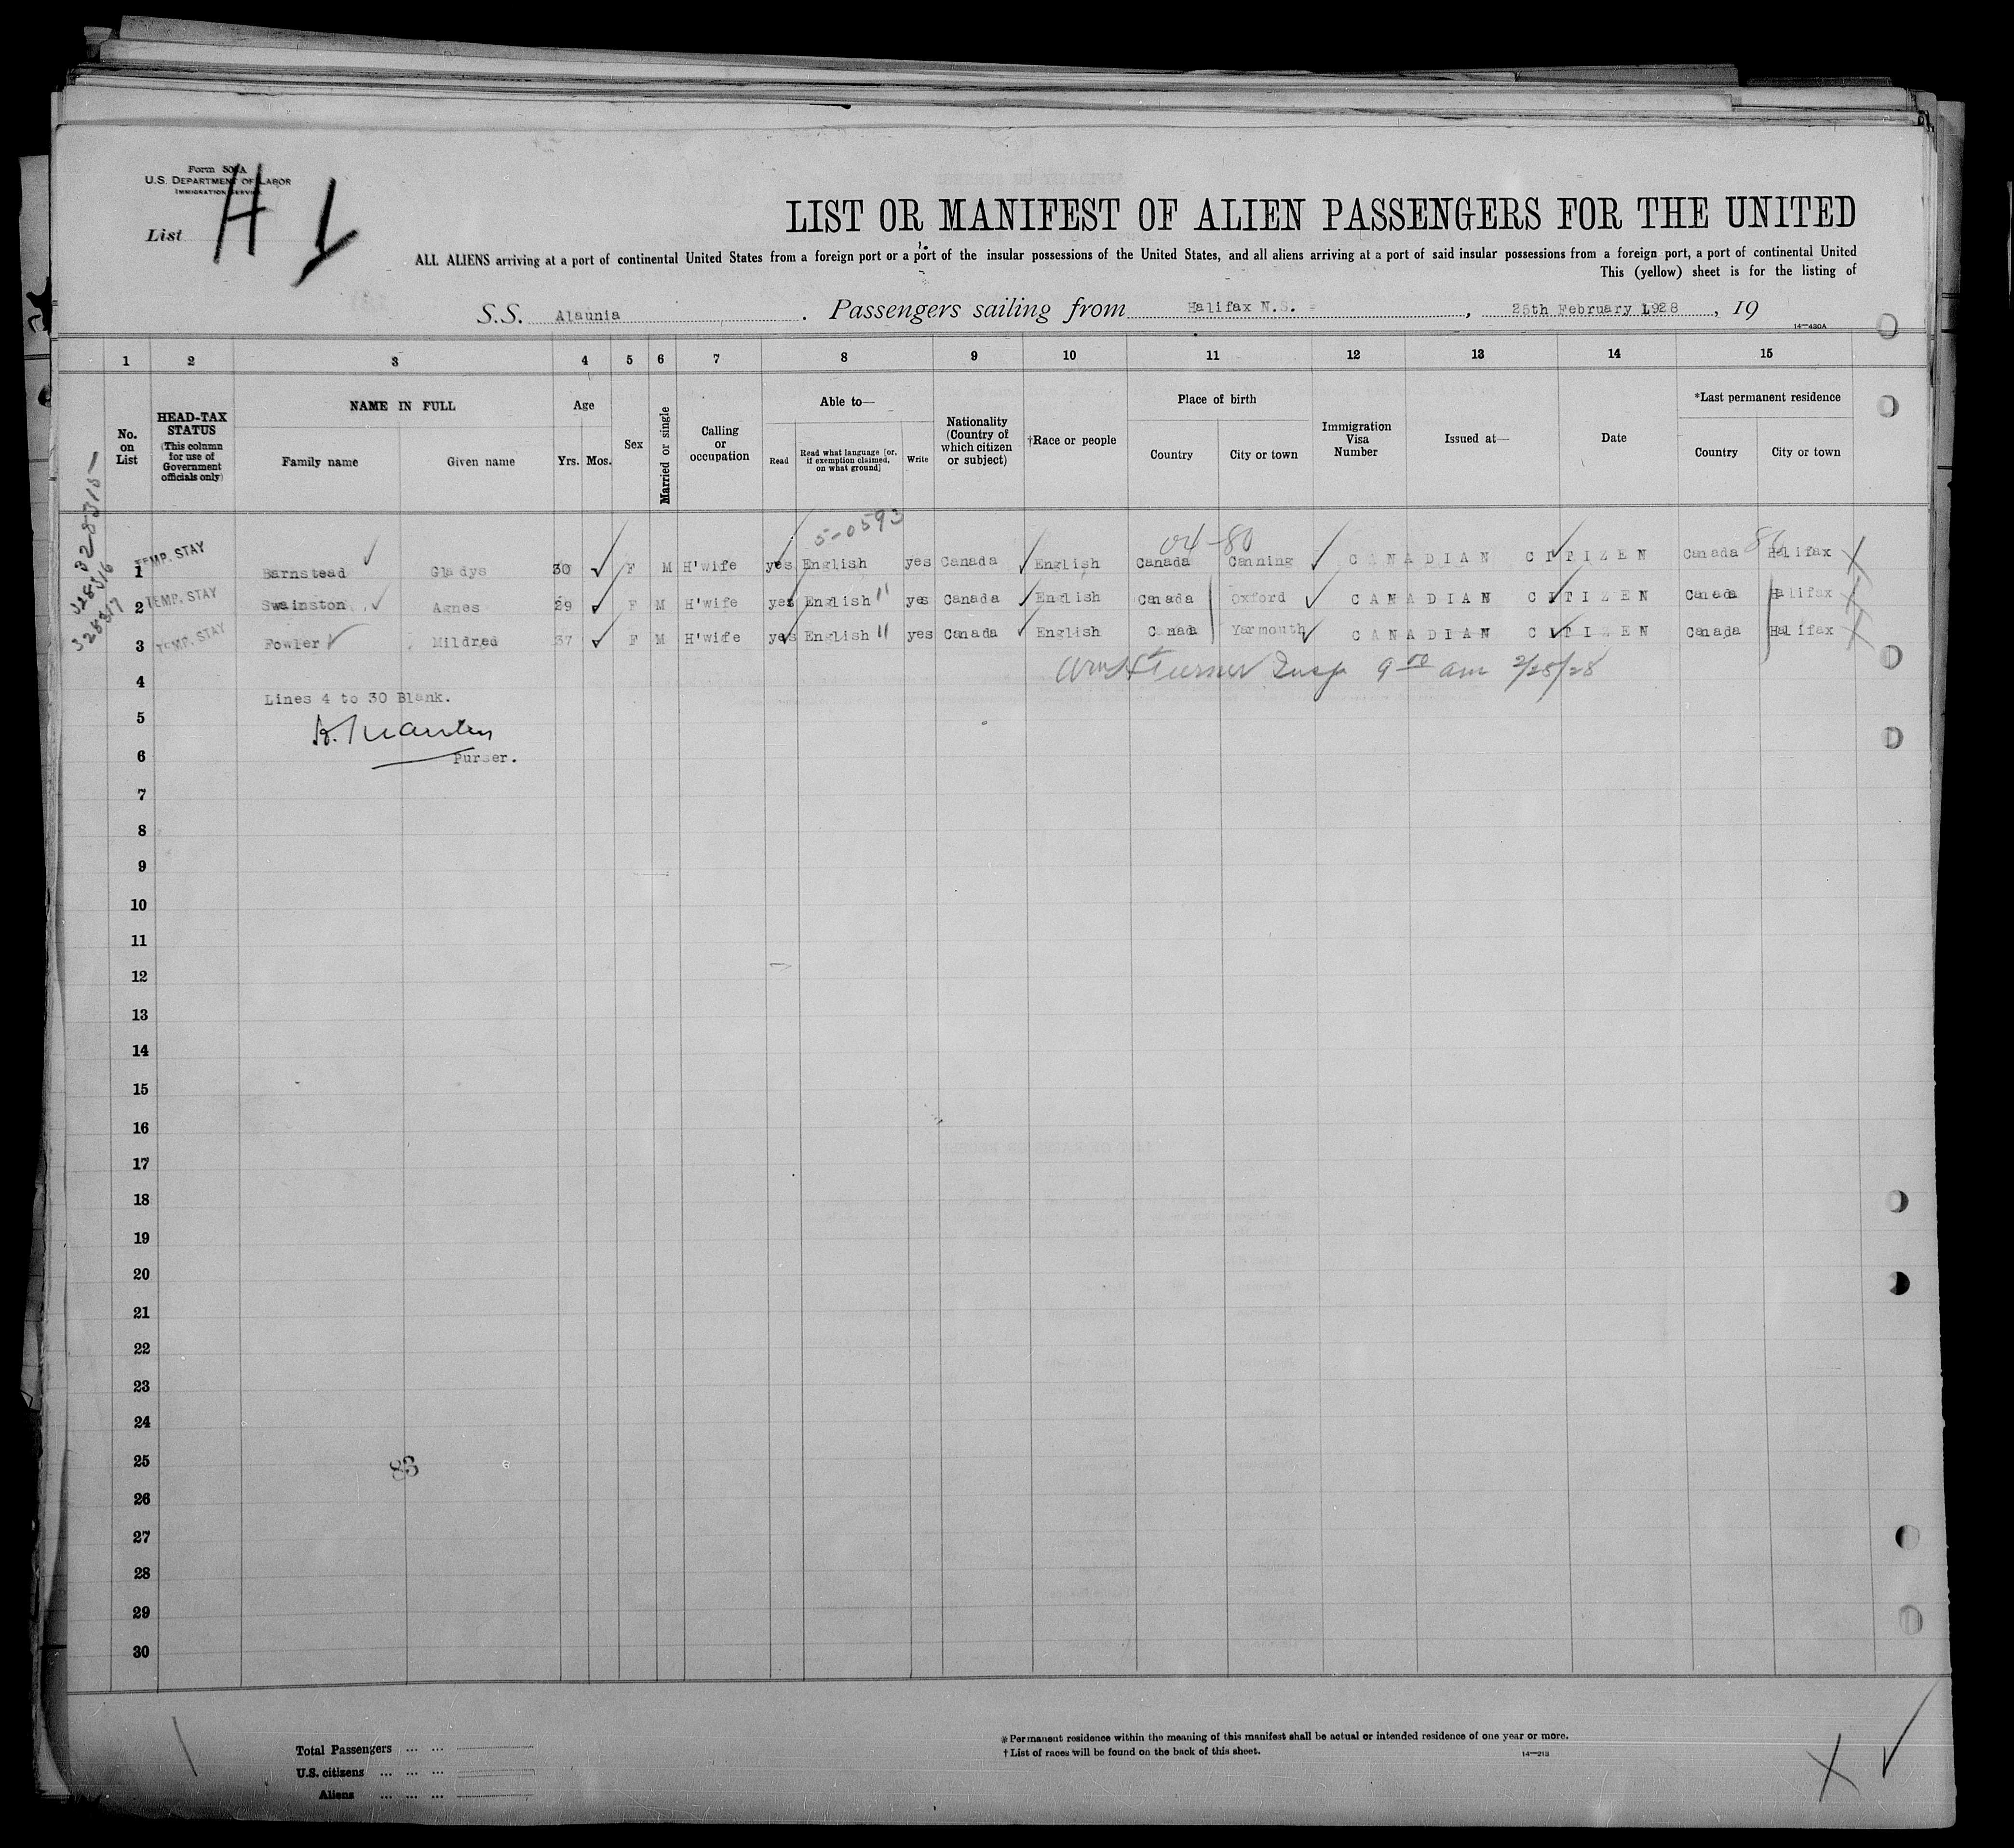 Form 500A
U.S. DEPARTMENT OF LABOR
IMMIGRATION SERVICE
List H 1
LIST OR MANIFEST OF ALIEN PASSENGERS FOR THE UNITED
ALL ALIENS arriving at a port of continental United States from a foreign port or a port of the insular possessions of the United States, and all aliens arriving at a port of said insular possessions from a foreign port, a port of continental United
This (yellow) sheet is for the listing of
S.S. Alaunia. Passengers sailing from Halifax N.S., 25th February 1928, 19
14—430A
1 2 3 4 5 6 7 8 9 10 11 12 13 14 15
No. on List
HEAD-TAX STATUS (This column for use of Government officials only)
NAME IN FULL
Family name Given name
Age
Yrs. Mos.
Sex
Married or single
Calling or occupation
Able to—
Read Read what language [or, if exemption claimed, on what ground] Write
Nationality (Country of which citizen or subject)
†Race or people
Place of birth
Country City or town
Immigration Visa Number
Issued at—
Date
*Last permanent residence
Country City or town
328315
328316
328317
5-0593
04-80
86
1 TEMP. STAY Barnstead Gladys 30 F M H'wife yes English yes Canada English Canada Canning CANADIAN CITIZEN Canada Halifax X
2 TEMP. STAY Swainston Agnes 29 F M H'wife yes English " yes Canada English Canada Oxford CANADIAN CITIZEN Canada Halifax X
3 TEMP. STAY Fowler Mildred 37 F M H'wife yes English " yes Canada English Canada Yarmouth CANADIAN CITIZEN Canada Halifax X
Turner Insp 9 00 am 2/28/28
4 Lines 4 to 30 Blank.
5
6 Purser.
7
8
9
10
11
12
13
14
15
16
17
18
19
20
21
22
23
24
25 83
26
27
28
29
30
Total Passengers ... ...
U.S. citizens ... ... ...
Aliens ... ... ...
*Permanent residence within the meaning of this manifest shall be actual or intended residence of one year or more.
†List of races will be found on the back of this sheet.
14—213
X